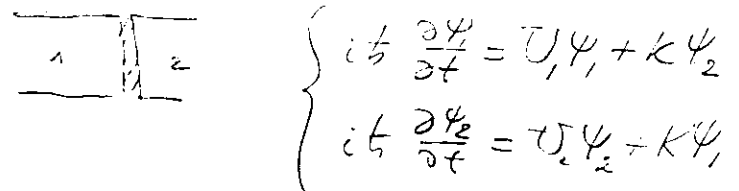 1 2
iħ ∂Ψ₁/∂t = U₁Ψ₁ + KΨ₂
iħ ∂Ψ₂/∂t = U₂Ψ₂ + KΨ₁